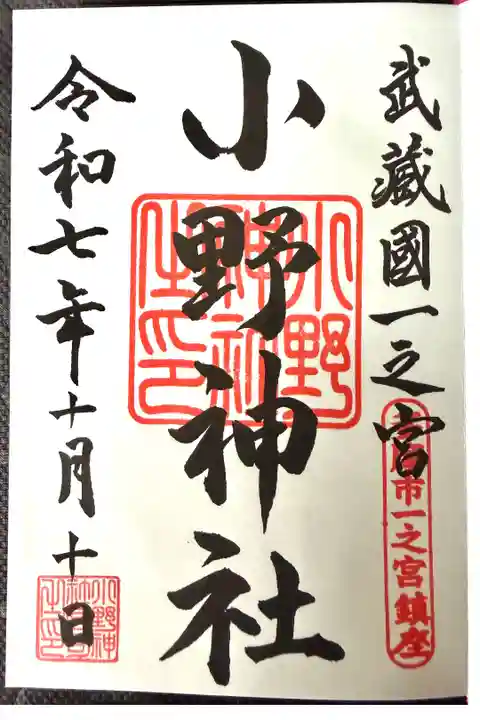 武蔵國一之宮
市一之宮鎮座
小野神社
小野神社之印
令和七年十月十日
小野神